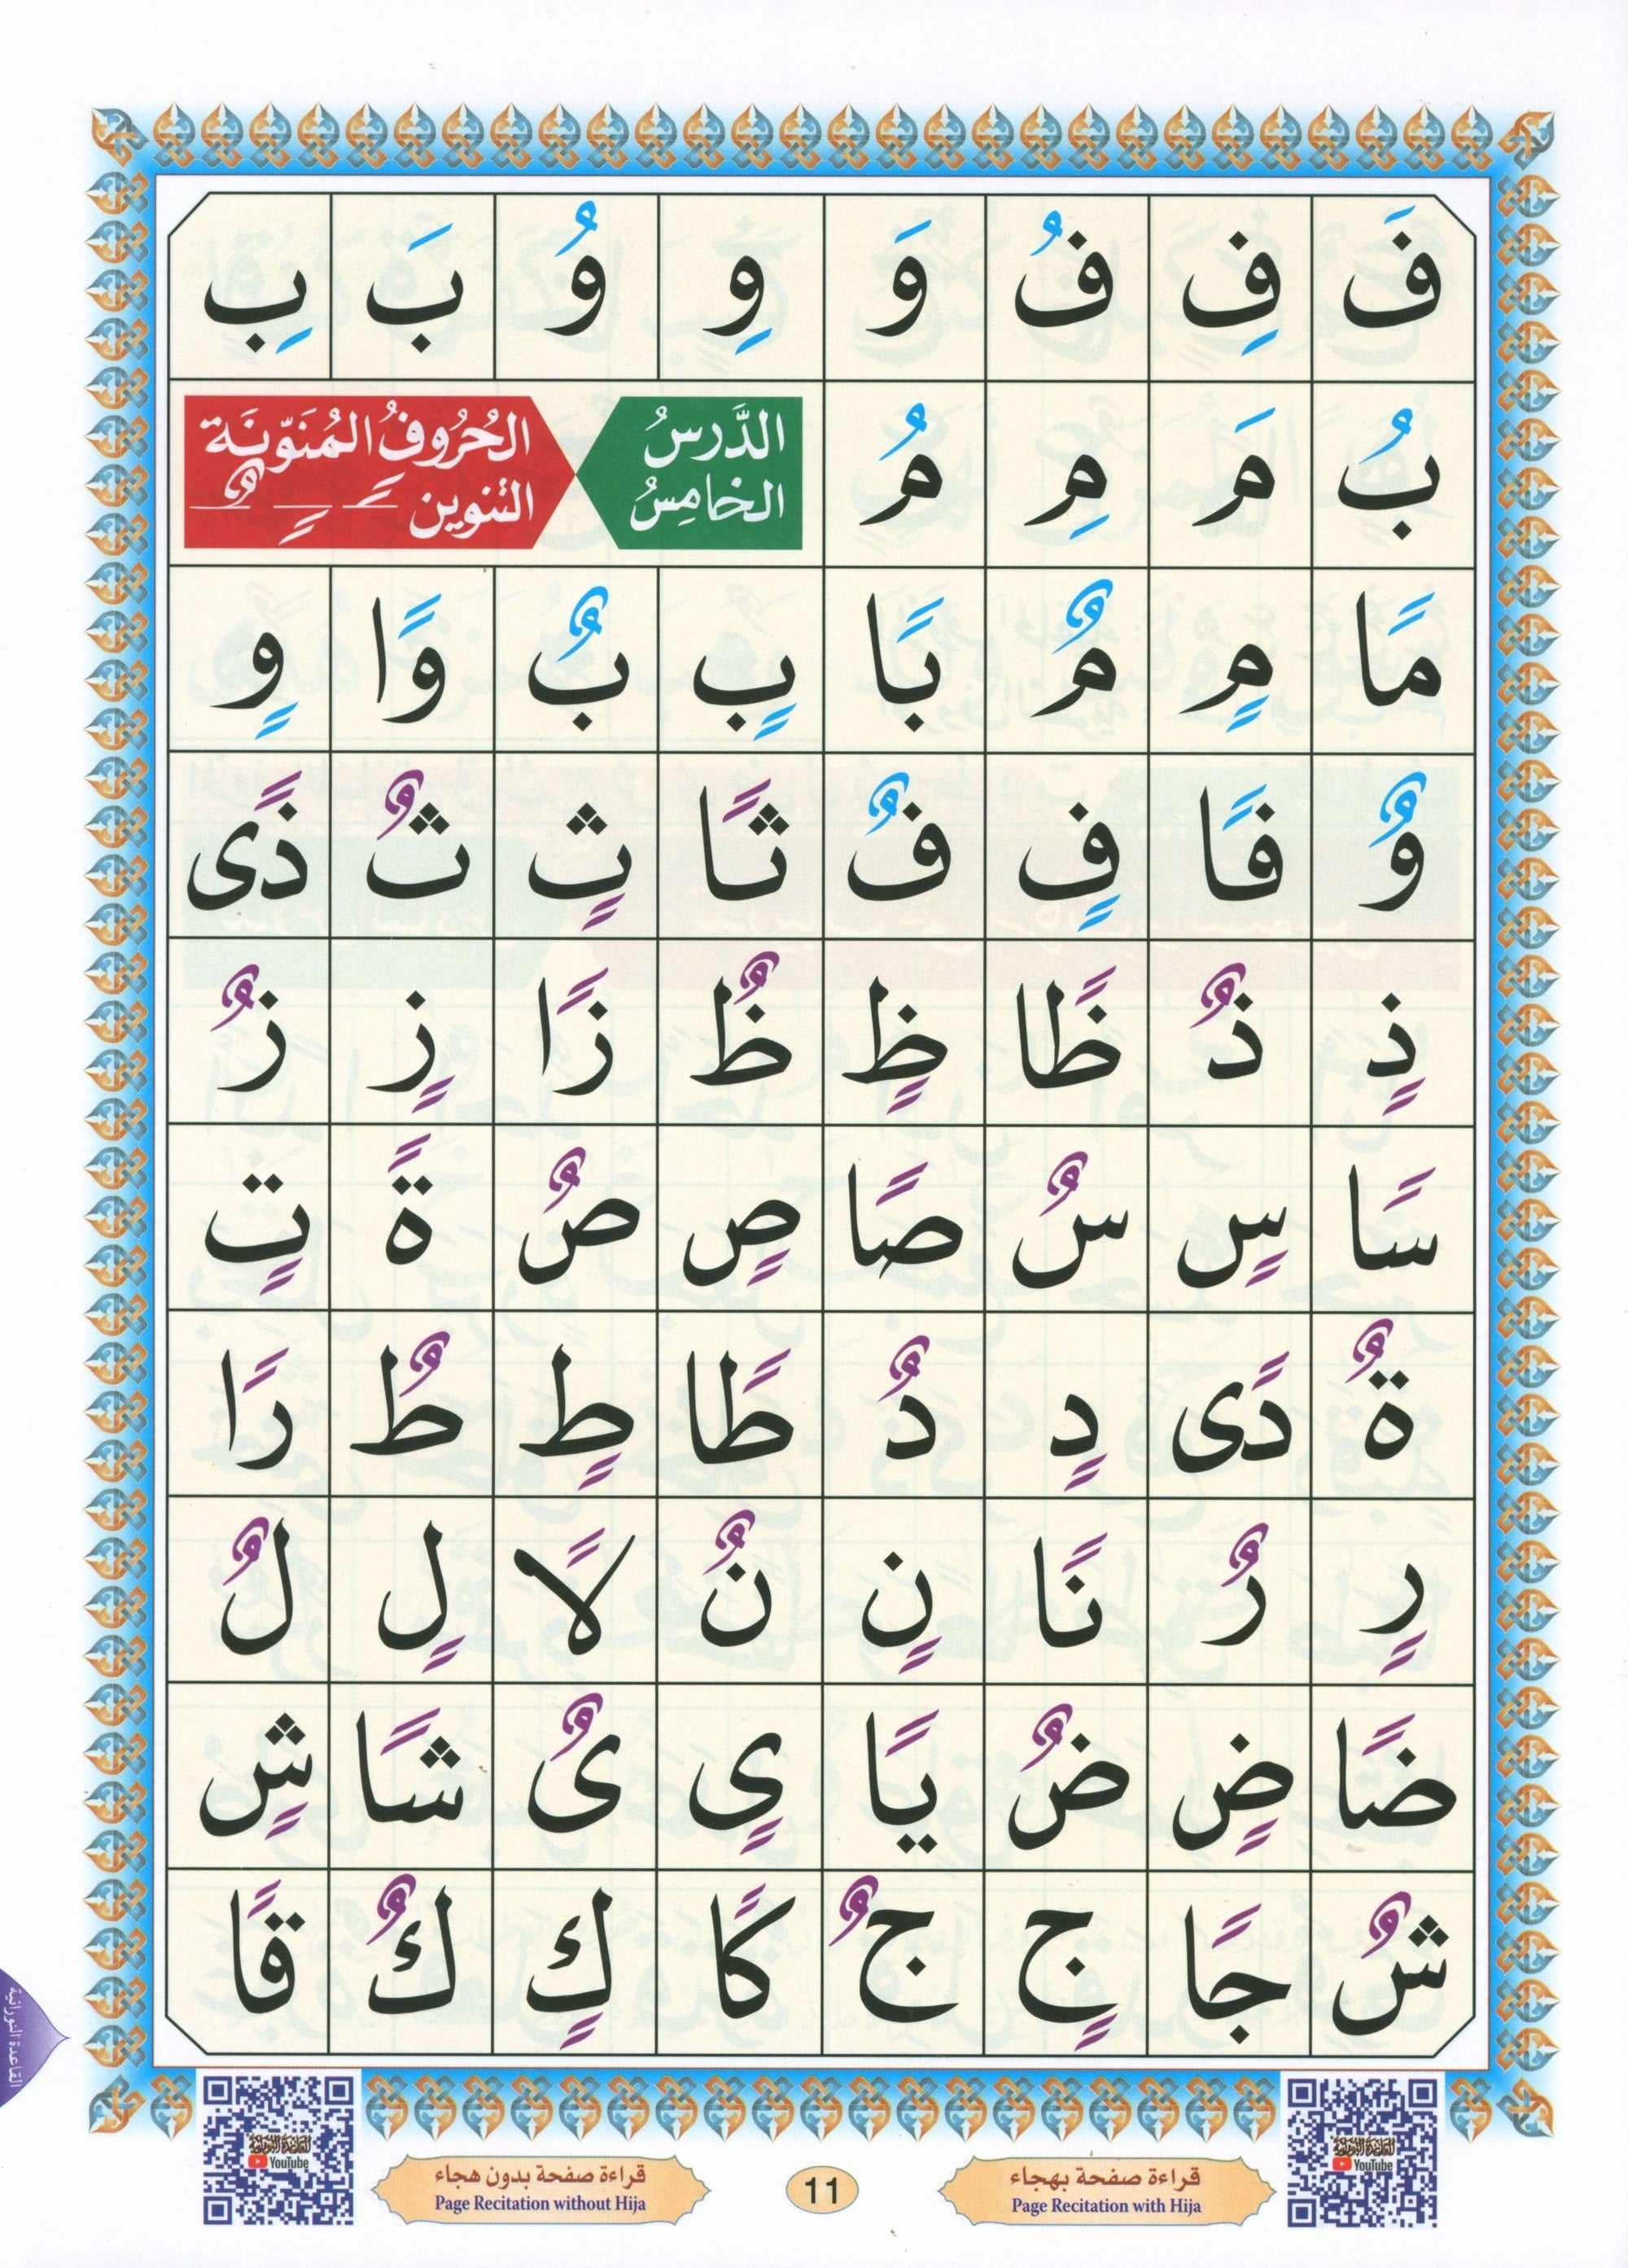 فَ فِ فُ وَ وِ وُ بَ بِ
بُ مَ مِ مُ
الدَّرسُ الخامِسُ
الحُرُوفُ المُنَوّنَة
التنوين ـً ـٍ ـٌ
مًا مٍ مٌ بًا بٍ بٌ وًا وٍ
وٌ فًا فٍ فٌ ثًا ثٍ ثٌ ذًى
ذٍ ذٌ ظًا ظٍ ظٌ زًا زٍ زٌ
سًا سٍ سٌ صًا صٍ صٌ ةً تٍ
ةٌ دًى دٍ دٌ طًا طٍ طٌ رًا
رٍ رٌ نًا نٍ نٌ لًا لٍ لٌ
ضًا ضٍ ضٌ يًا ىٍ ىٌ شًا شٍ
شٌ جًا جٍ جٌ كًا كٍ كٌ قًا
القاعدة النورانية
القاعدة النورانية
YouTube
قراءة صفحة بهجاء
Page Recitation with Hija
11
قراءة صفحة بدون هجاء
Page Recitation without Hija
القاعدة النورانية
YouTube